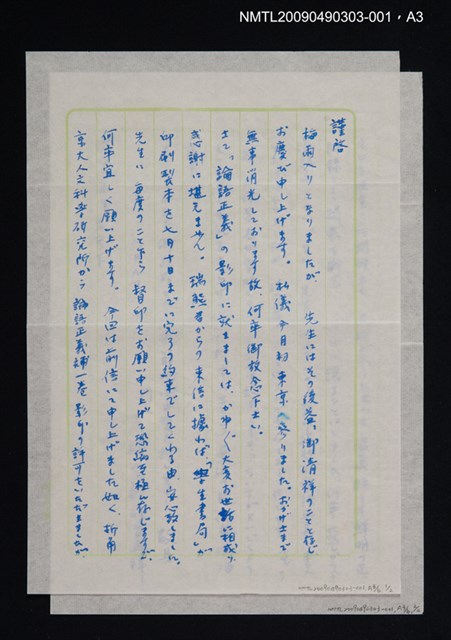 NMTL20090490303-001，A3
謹啓
梅雨入りとなりましたが、先生にはその後益々御清祥のことと存じ
お慶び申し上げます。私儀今月初東京へ参りました。おかげさまで
無事消光しております故、何卒御放念下さい。
さて、「論語正義」の影印に就きましては、かねがね大変お世話に相成り
感謝に堪えません。瑞熊君からの来信に據れば、「學生書局」が
印刷製本を七月十日までに完了の約束でしてくれる由、安心致しました。
先生に毎度のこと乍ら督印をお願い申し上げて恐縮を極め存じますが、
何卒宜しく願い上げます。今回は前信にて申し上げました如く、折角
京大人文科学研究所から論語正義補一巻影印の許可をいただきましたが、
NMTL20090490303-001, A3/6, 1/2
NMTL20090490303-001, A3/6, 1/2